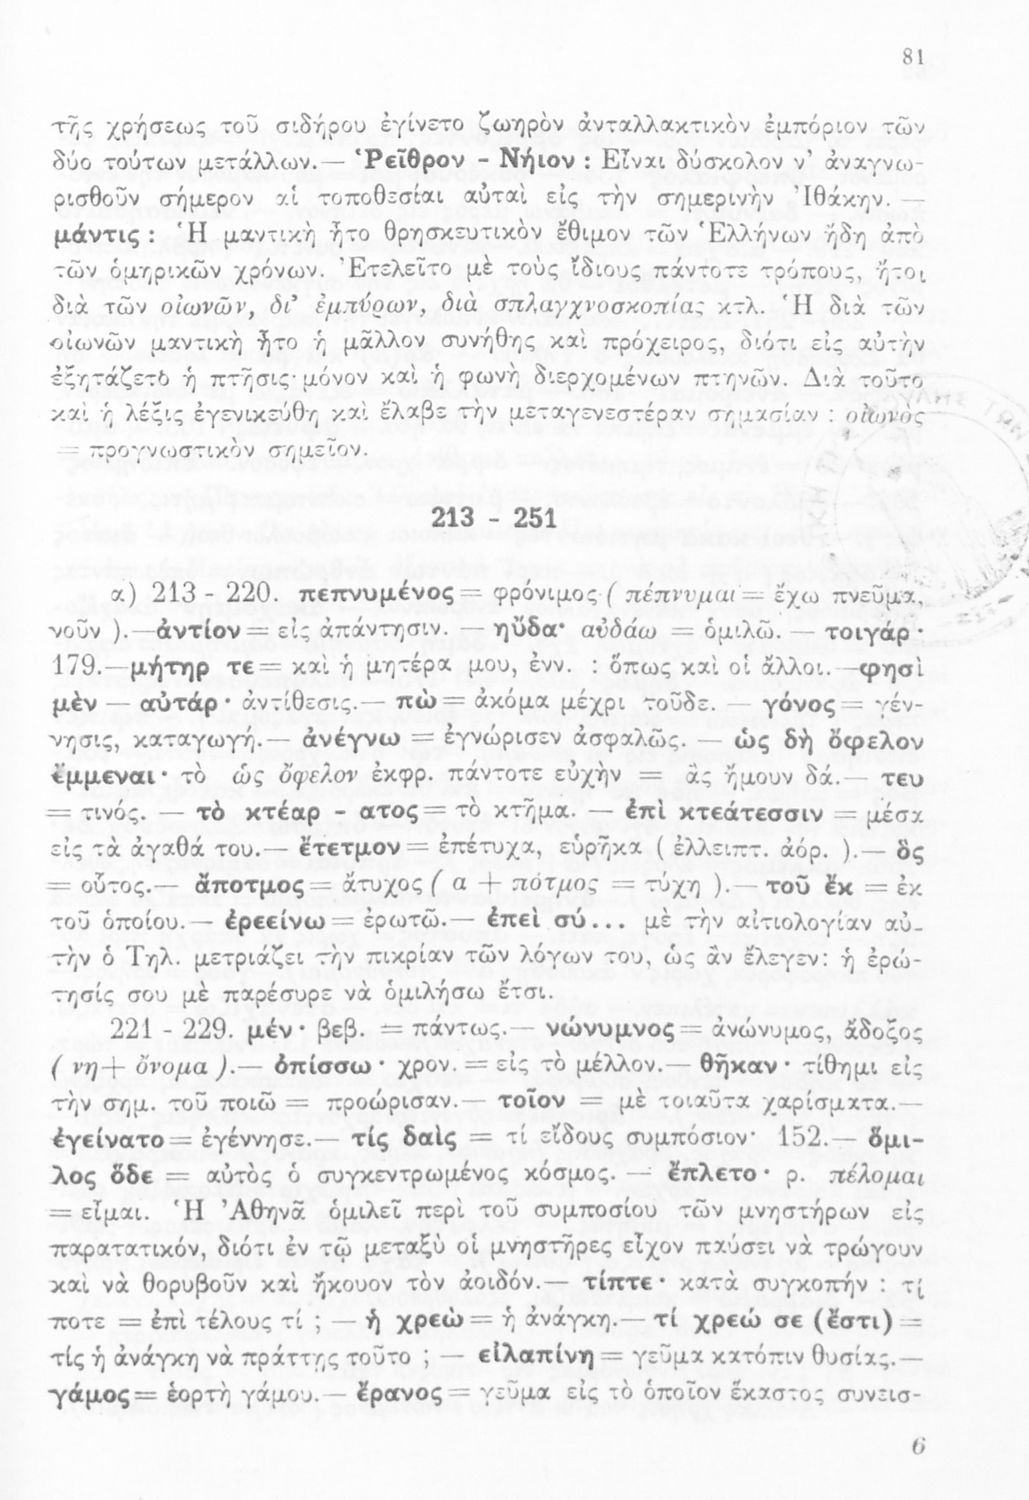 81
τῆς χρήσεως τοῦ σιδήρου ἐγίνετο ζωηρὸν ἀνταλλακτικὸν ἐμπόριον τῶν
δύο τούτων μετάλλων.— Ῥεῖθρον - Νήιον : Εἶναι δύσκολον ν' ἀναγνω-
ρισθοῦν σήμερον αἱ τοποθεσίαι αὐταὶ εἰς τὴν σημερινὴν Ἰθάκην. —
μάντις : Ἡ μαντικὴ ἦτο θρησκευτικὸν ἔθιμον τῶν Ἑλλήνων ἤδη ἀπὸ
τῶν ὁμηρικῶν χρόνων. Ἐτελεῖτο μὲ τοὺς ἴδιους πάντοτε τρόπους, ἤτοι
διὰ τῶν οἰωνῶν, δι' ἐμπύρων, διὰ σπλαγχνοσκοπίας κτλ. Ἡ διὰ τῶν
οἰωνῶν μαντικὴ ἦτο ἡ μᾶλλον συνήθης καὶ πρόχειρος, διότι εἰς αὐτὴν
ἐξητάζετο ἡ πτῆσις μόνον καὶ ἡ φωνὴ διερχομένων πτηνῶν. Διὰ τοῦτο
καὶ ἡ λέξις ἐγενικεύθη καὶ ἔλαβε τὴν μεταγενεστέραν σημασίαν : οἰωνὸς
= προγνωστικὸν σημεῖον.
213 - 251
α) 213 - 220. πεπνυμένος = φρόνιμος ( πέπνυμαι = ἔχω πνεῦμα,
νοῦν ).—ἀντίον = εἰς ἀπάντησιν. — ηὔδα· αὐδάω = ὁμιλῶ. — τοιγάρ ·
179.—μήτηρ τε = καὶ ἡ μητέρα μου, ἐνν. : ὅπως καὶ οἱ ἄλλοι.—φησὶ
μὲν — αὐτάρ · ἀντίθεσις.— πὼ = ἀκόμα μέχρι τοῦδε. — γόνος = γέν-
νησις, καταγωγή.— ἀνέγνω = ἐγνώρισεν ἀσφαλῶς. — ὡς δὴ ὄφελον
ἔμμεναι · τὸ ὡς ὄφελον ἐκφρ. πάντοτε εὐχὴν = ἂς ἤμουν δά.— τευ
= τινός. — τὸ κτέαρ - ατος = τὸ κτῆμα. — ἐπὶ κτεάτεσσιν = μέσα
εἰς τὰ ἀγαθά του.— ἔτετμον = ἐπέτυχα, εὑρῆκα ( ἐλλειπτ. ἀόρ. ).— ὃς
= οὗτος.— ἄποτμος = ἄτυχος ( α + πότμος = τύχη ).— τοῦ ἔκ = ἐκ
τοῦ ὁποίου.— ἐρεείνω = ἐρωτῶ.— ἐπεὶ σύ... μὲ τὴν αἰτιολογίαν αὐ-
τὴν ὁ Τηλ. μετριάζει τὴν πικρίαν τῶν λόγων του, ὡς ἂν ἔλεγεν: ἡ ἐρώ-
τησίς σου μὲ παρέσυρε νὰ ὁμιλήσω ἔτσι.
221 - 229. μέν · βεβ. = πάντως.— νώνυμνος = ἀνώνυμος, ἄδοξος
( νη + ὄνομα ).— ὀπίσσω · χρον. = εἰς τὸ μέλλον.— θῆκαν · τίθημι εἰς
τὴν σημ. τοῦ ποιῶ = προώρισαν.— τοῖον = μὲ τοιαῦτα χαρίσματα.—
ἐγείνατο = ἐγέννησε.— τίς δαὶς = τί εἴδους συμπόσιον· 152.— ὅμι-
λος ὅδε = αὐτὸς ὁ συγκεντρωμένος κόσμος. — ἔπλετο · ρ. πέλομαι
= εἶμαι. Ἡ Ἀθηνᾶ ὁμιλεῖ περὶ τοῦ συμποσίου τῶν μνηστήρων εἰς
παρατατικόν, διότι ἐν τῷ μεταξὺ οἱ μνηστῆρες εἶχον παύσει νὰ τρώγουν
καὶ νὰ θορυβοῦν καὶ ἤκουον τὸν ἀοιδόν.— τίπτε · κατὰ συγκοπήν : τί
ποτε = ἐπὶ τέλους τί ; — ἡ χρεὼ = ἡ ἀνάγκη.— τί χρεώ σε (ἔστι) =
τίς ἡ ἀνάγκη νὰ πράττῃς τοῦτο ; — εἰλαπίνη = γεῦμα κατόπιν θυσίας.—
γάμος = ἑορτὴ γάμου.— ἔρανος = γεῦμα εἰς τὸ ὁποῖον ἕκαστος συνεισ-
6